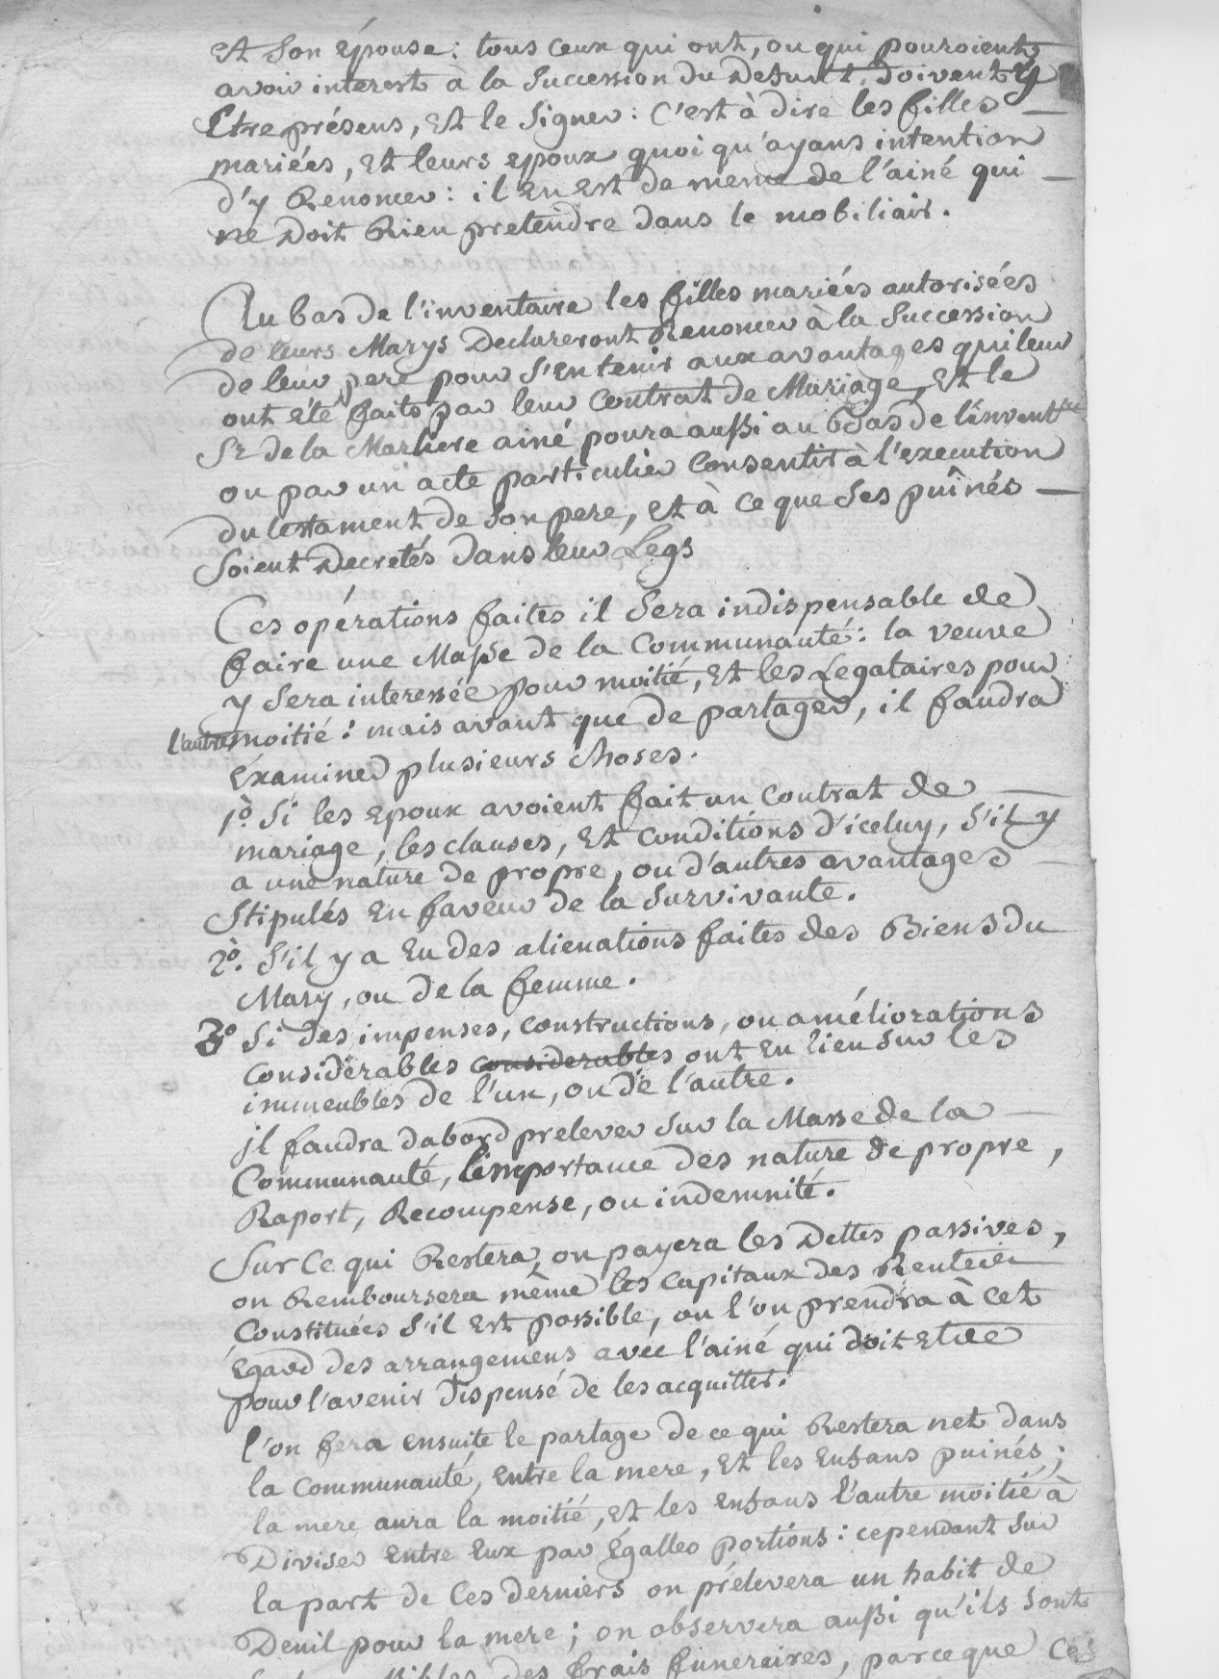 et son épouse: tous ceux qui ont, ou qui pouroient
avoir interest a la succession du defunt, doivent y
Etre présens, et le signer: c'est à dire les filles
mariées, et leurs epoux quoi qu'ayans intention
d'y Renoncer: il en est de meme de l'ainé qui
ne doit Rien pretendre dans le mobiliair.
Au bas de l'inventaire les filles mariées autorisées
de leurs Marys Declareront Renoncer à la succession
de leur pere pour s'en tenir aux avantages qui leur
ont été faits par leur Contrat de Mariage, et le
Sr. de la Marliere ainé poura aussi au bas de l'invent.re
ou par un acte particulier consentir à l'execution
du testament de son pere, et à ce que ses puînés
soient Decretés dans leur Legs
Ces opérations faites il sera indispensable de
faire une Masse de la Communauté: la veuve
y sera interessée pour moitié, et les Legataires pour
l'autre moitié: mais avant que de partager, il faudra
éxaminer plusieurs choses.
1.° Si les epoux avoient fait un contrat de
mariage, les clauses, et conditions d'iceluy, s'il y
a une nature de propre, ou d'autres avantages
Stipulés en faveur de la survivante.
2.° S'il y a eu des alienations faites des Biens du
Mary, ou de la femme.
3° Si des impenses, constructions, ou améliorations
considérables considerables ont eu lieu sur les
immeubles de l'un, ou de l'autre.
il faudra dabord prelever sur la Masse de la
Communauté, l'importance des nature de propre,
Raport, Recompense, ou indemnité.
Sur ce qui Restera, on payera les Dettes passives,
on Remboursera même les capitaux des Rentes
Constituées s'il est possible, ou l'on prendra à cet
égard des arrangemens avec l'ainé qui doit etre
pour l'avenir dispensé de les acquitter.
l'on fera ensuite le partage de ce qui Restera net dans
la Communauté, entre la mere, et les enfans puinés;
la mere aura la moitié, et les enfans l'autre moitié à
Diviser entre eux par égalles portions: cependant sur
la part de ces derniers on prélevera un habit de
Deuil pour la mere; on observera aussi qu'ils sont
des frais funeraires, parceque ces